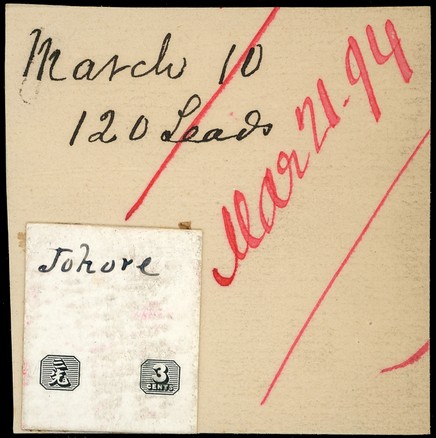 March 10
120 Leads
Mar 21-94
Johore
3
CENTS